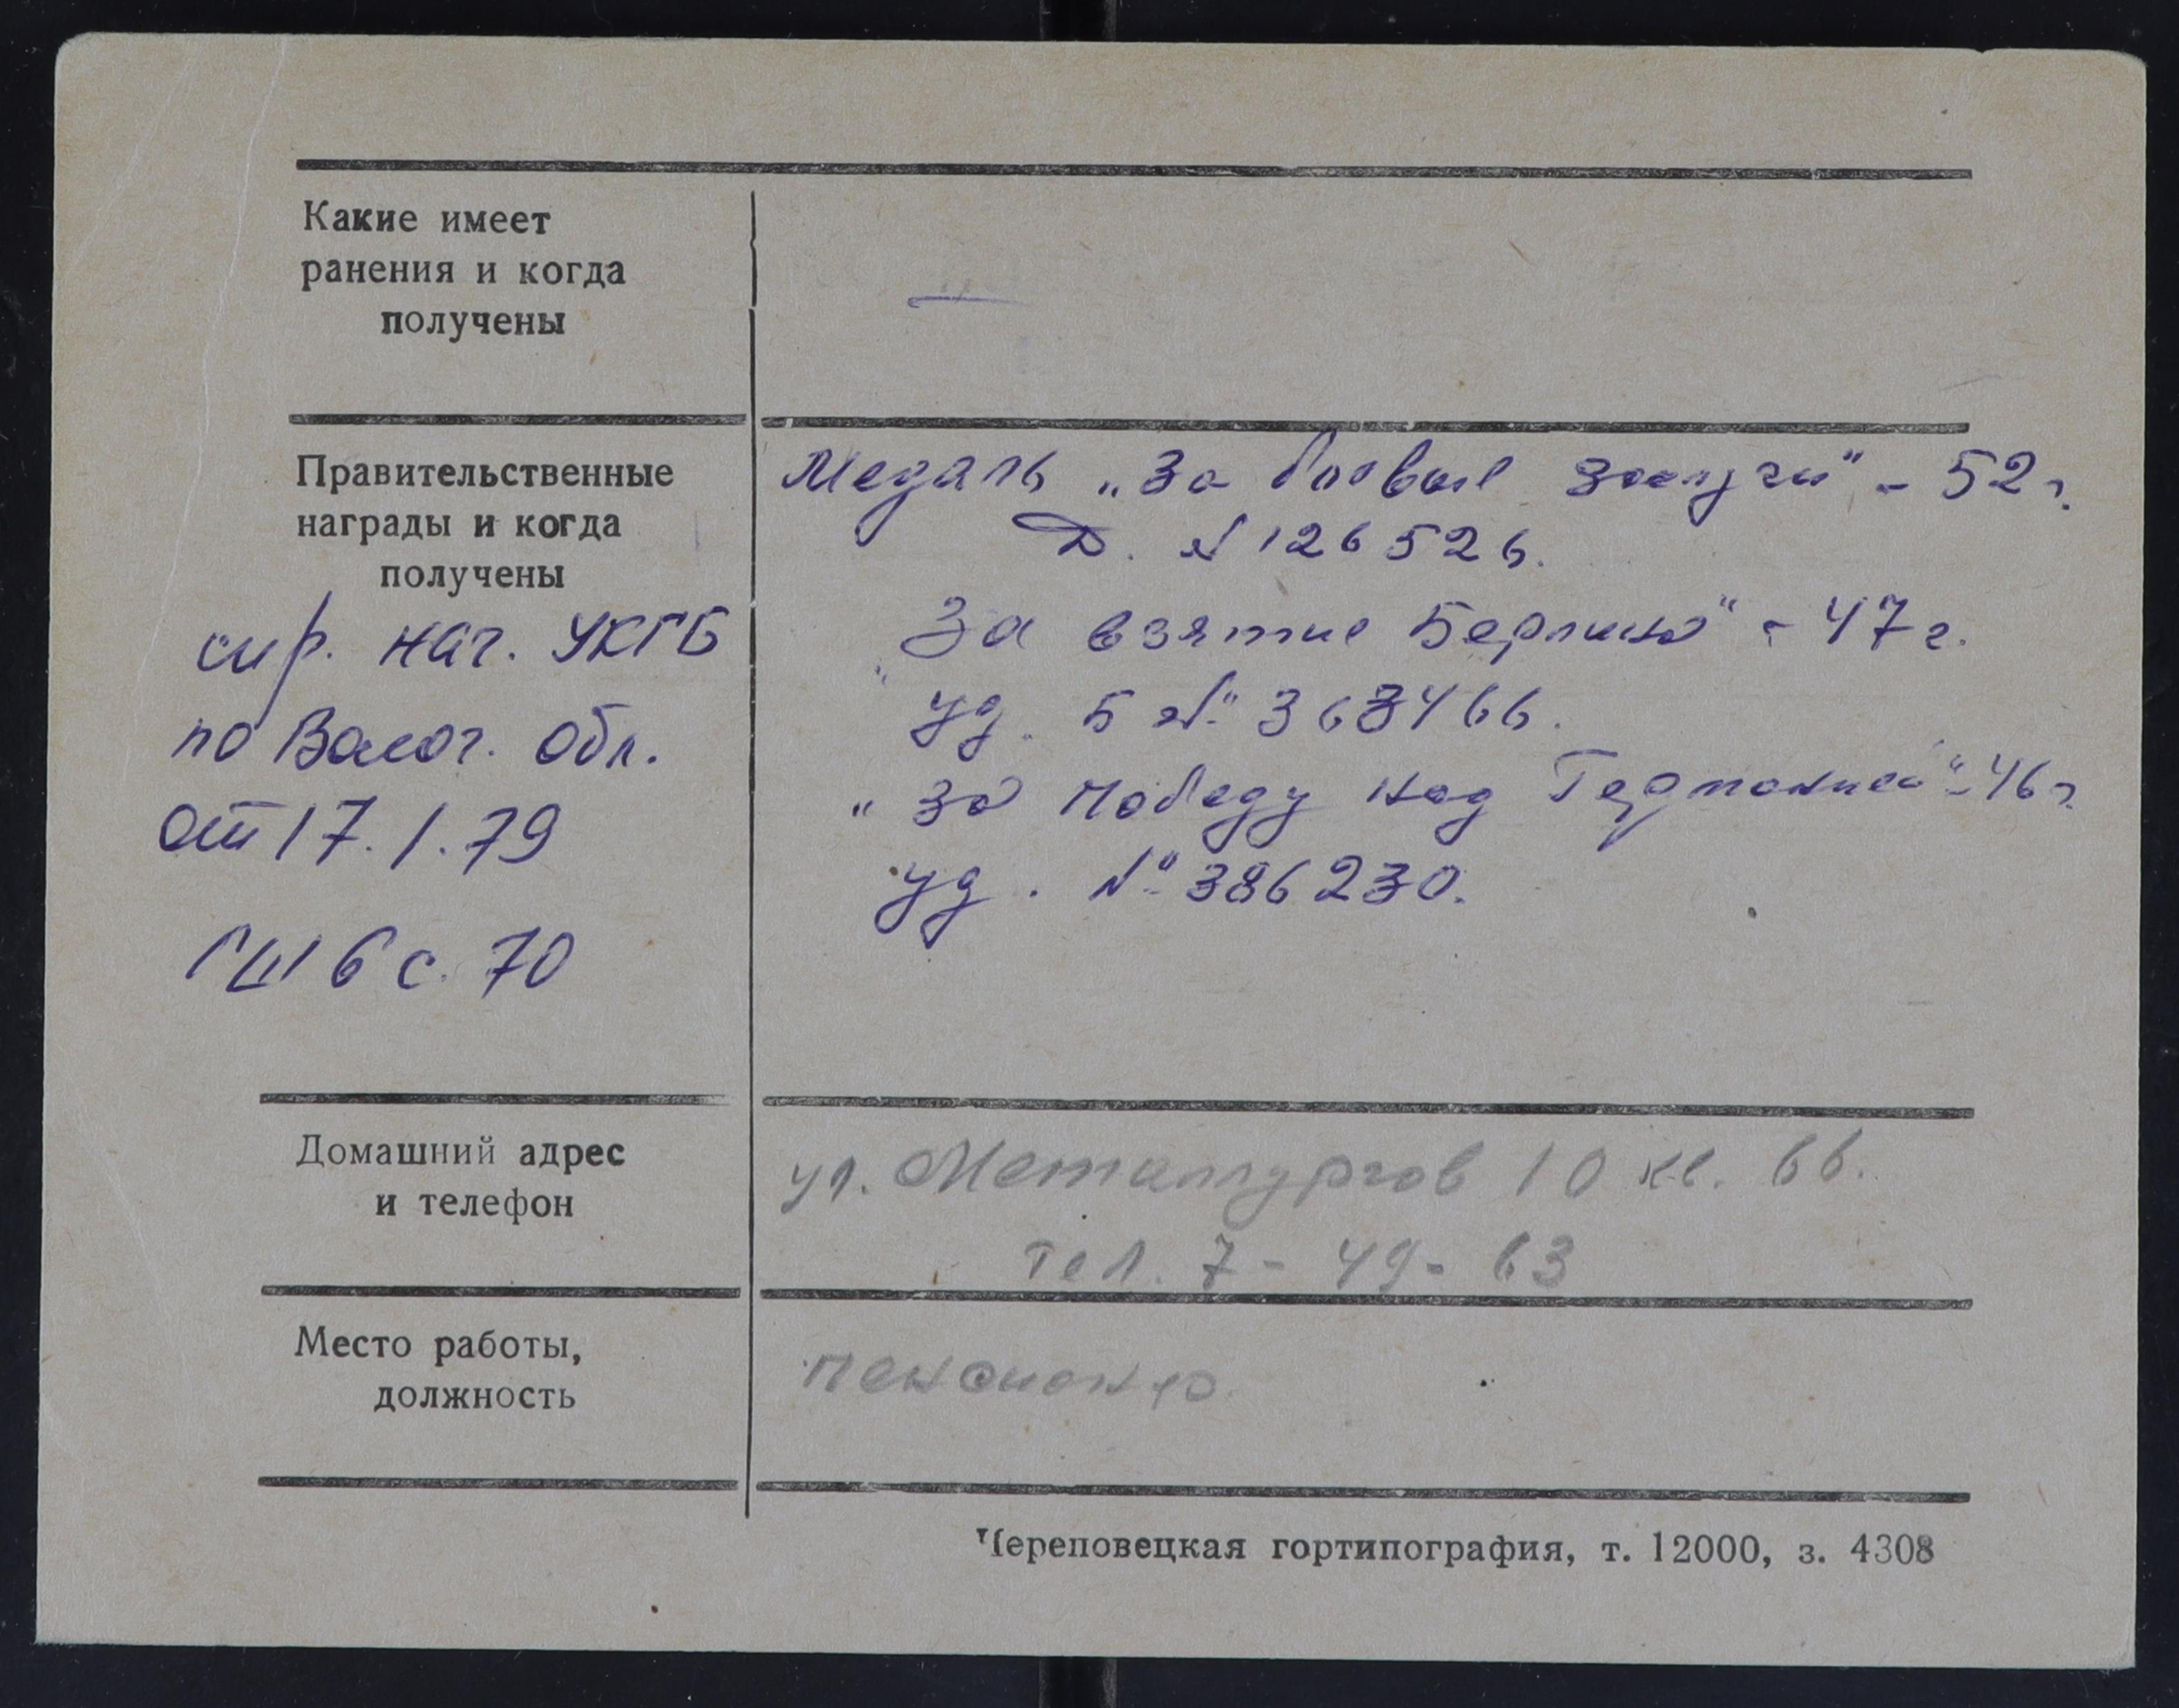 Какие имеет
ранения и когда
получены
—
Правительственные
награды и когда
получены
Медаль „За боевые заслуги" - 52 г.
Д. № 126526.
„За взятие Берлина" - 47 г.
уд. Б № 363466.
„За победу над Германией" - 46 г.
уд. № 386230.
спр. нач. УКГБ
по Волог. обл.
от 17.1.79
ГШ 6 с. 70
Домашний адрес
и телефон
ул. Металлургов 10 кв. 66.
тел. 7-49-63
Место работы,
должность
пенсионер.
Череповецкая гортипография, т. 12000, з. 4308